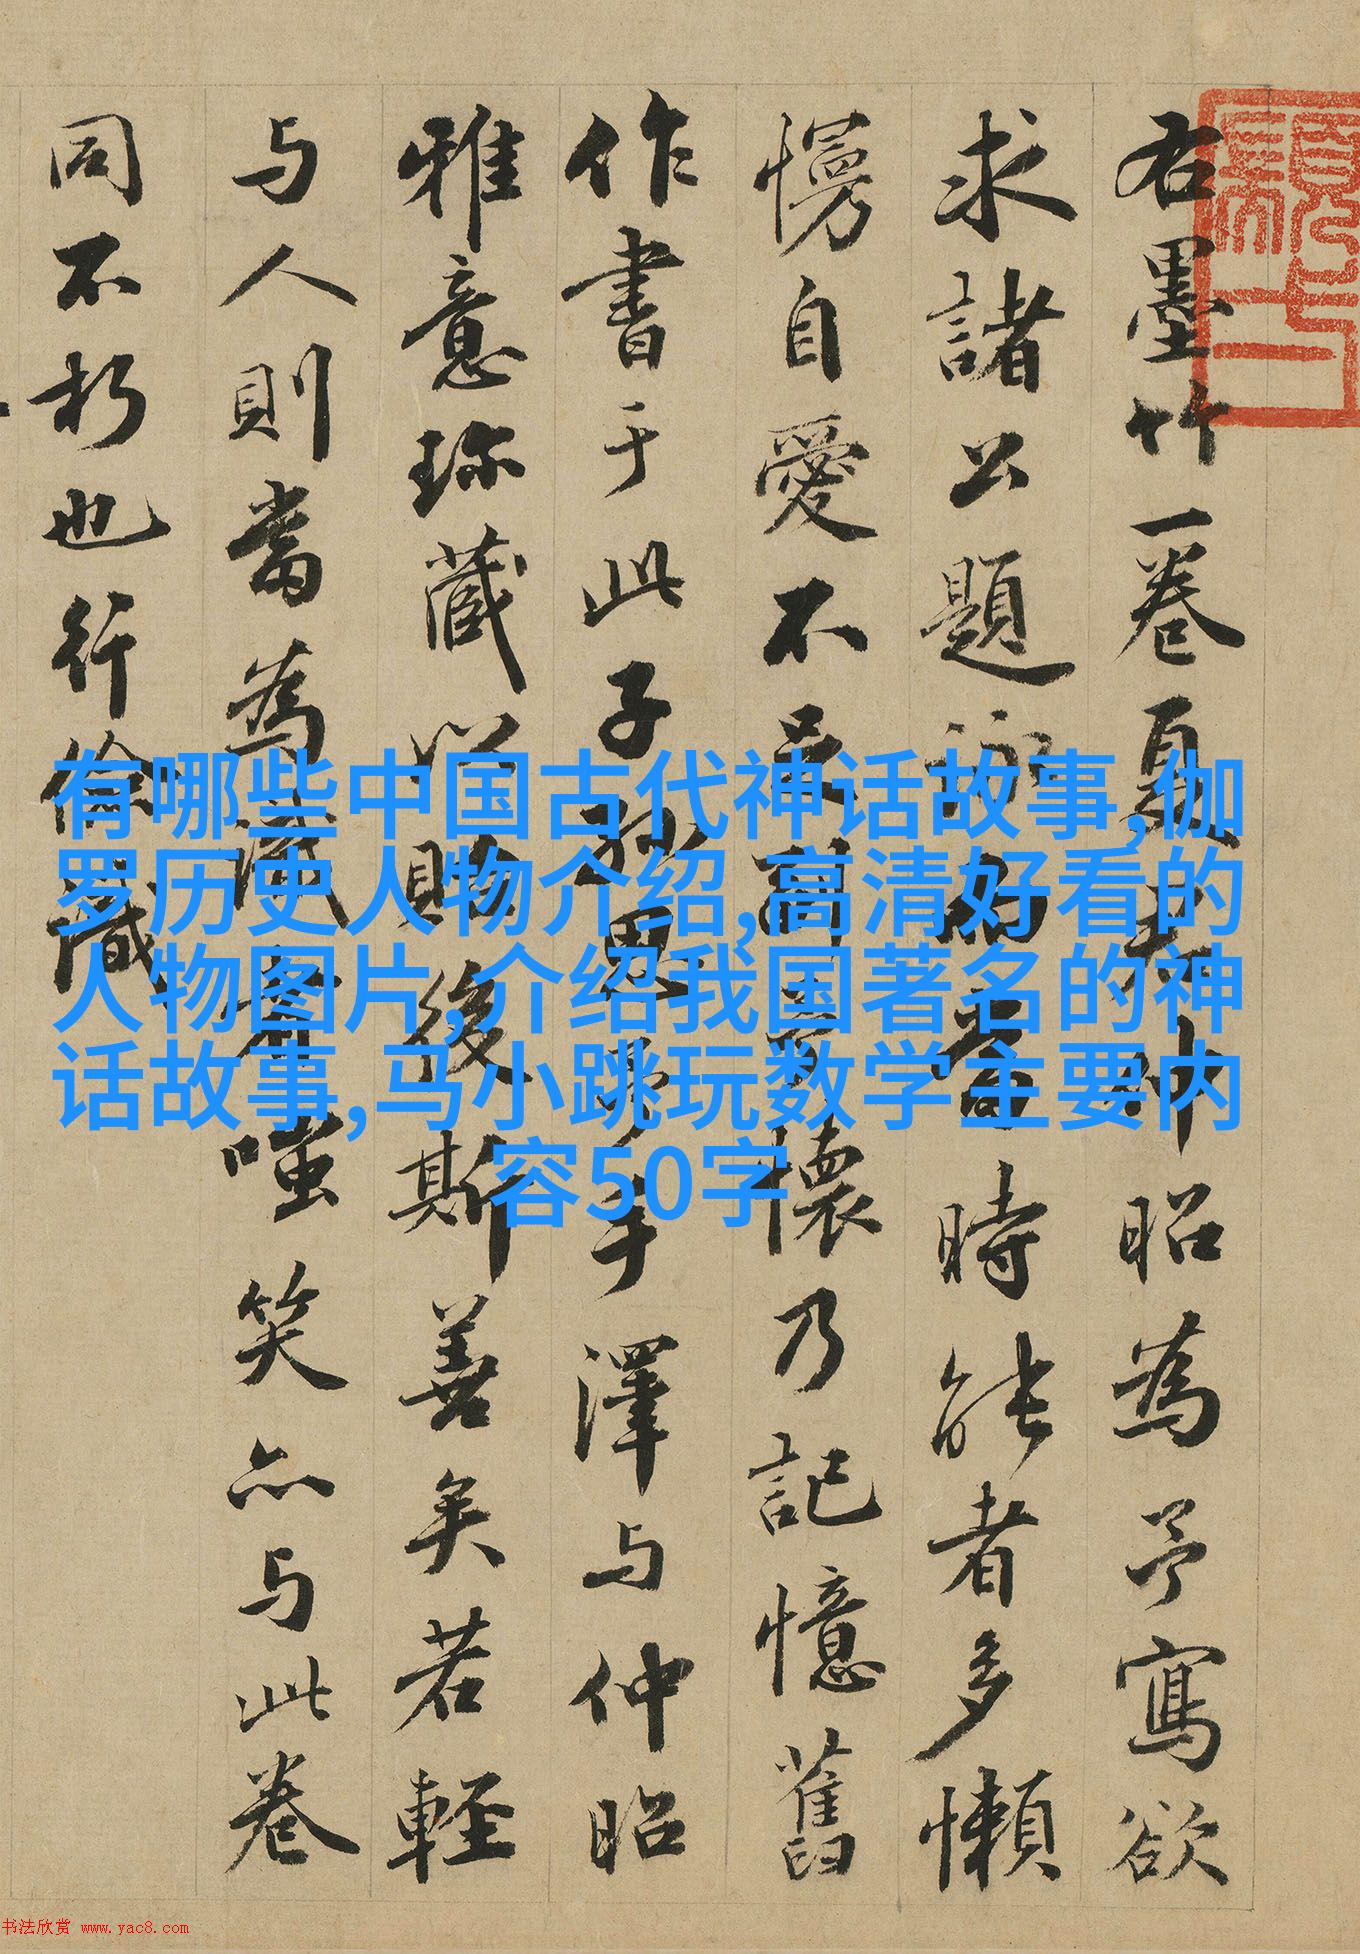 右墨竹一卷夏仲昭為予寫欲
求諸公題詠時能者多懶
慢自愛不懷乃記憶舊
作書于此子孫思予手澤与仲昭
雅意珍藏以貽後斯善矣若輕
与人則當為識者嗤笑亦与此卷
同不朽也行儉識
有哪些中国古代神话故事,伽
罗历史人物介绍,高清好看的
人物图片,介绍我国著名的神
话故事,马小跳玩数学主要内
容50字
书法欣赏 www.yac8.com